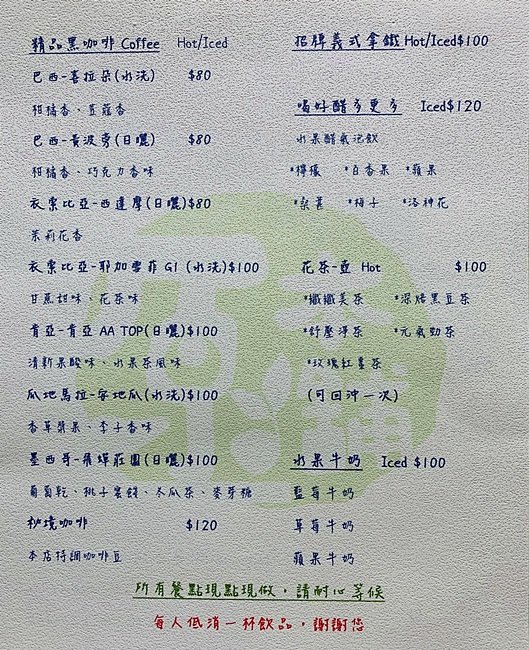 精品黑咖啡 Coffee Hot/Iced
巴西-喜拉朵(水洗) $80
柑橘香、豆蔻香
巴西-黃波旁(日曬) $80
柑橘香、巧克力香味
衣索比亞-西達摩(日曬)$80
茉莉花香
衣索比亞-耶加雪菲G1 (水洗)$100
甘蔗甜味、花茶味
肯亞-肯亞AA TOP(日曬)$100
清新果酸味、水果茶風味
瓜地馬拉-安地瓜(水洗)$100
香草漿果、李子香味
墨西哥-飛蟬莊園(日曬)$100
葡萄乾、桃子蜜餞、冬瓜茶、麥芽糖
秘境咖啡 $120
本店特調咖啡豆
招牌義式拿鐵Hot/Iced$100
喝好醋多更多 Iced$120
水果醋氣泡飲
*檸檬 *百香果 *蘋果
*桑葚 *梅子 *洛神花
花茶-壺 Hot $100
*纖纖美茶 *深焙黑豆茶
*舒壓淨茶 *元氣勁茶
*玫瑰紅棗茶
(可回沖一次)
水果牛奶 Iced $100
藍莓牛奶
草莓牛奶
蘋果牛奶
所有餐點現點現做，請耐心等候
每人低消一杯飲品，謝謝您